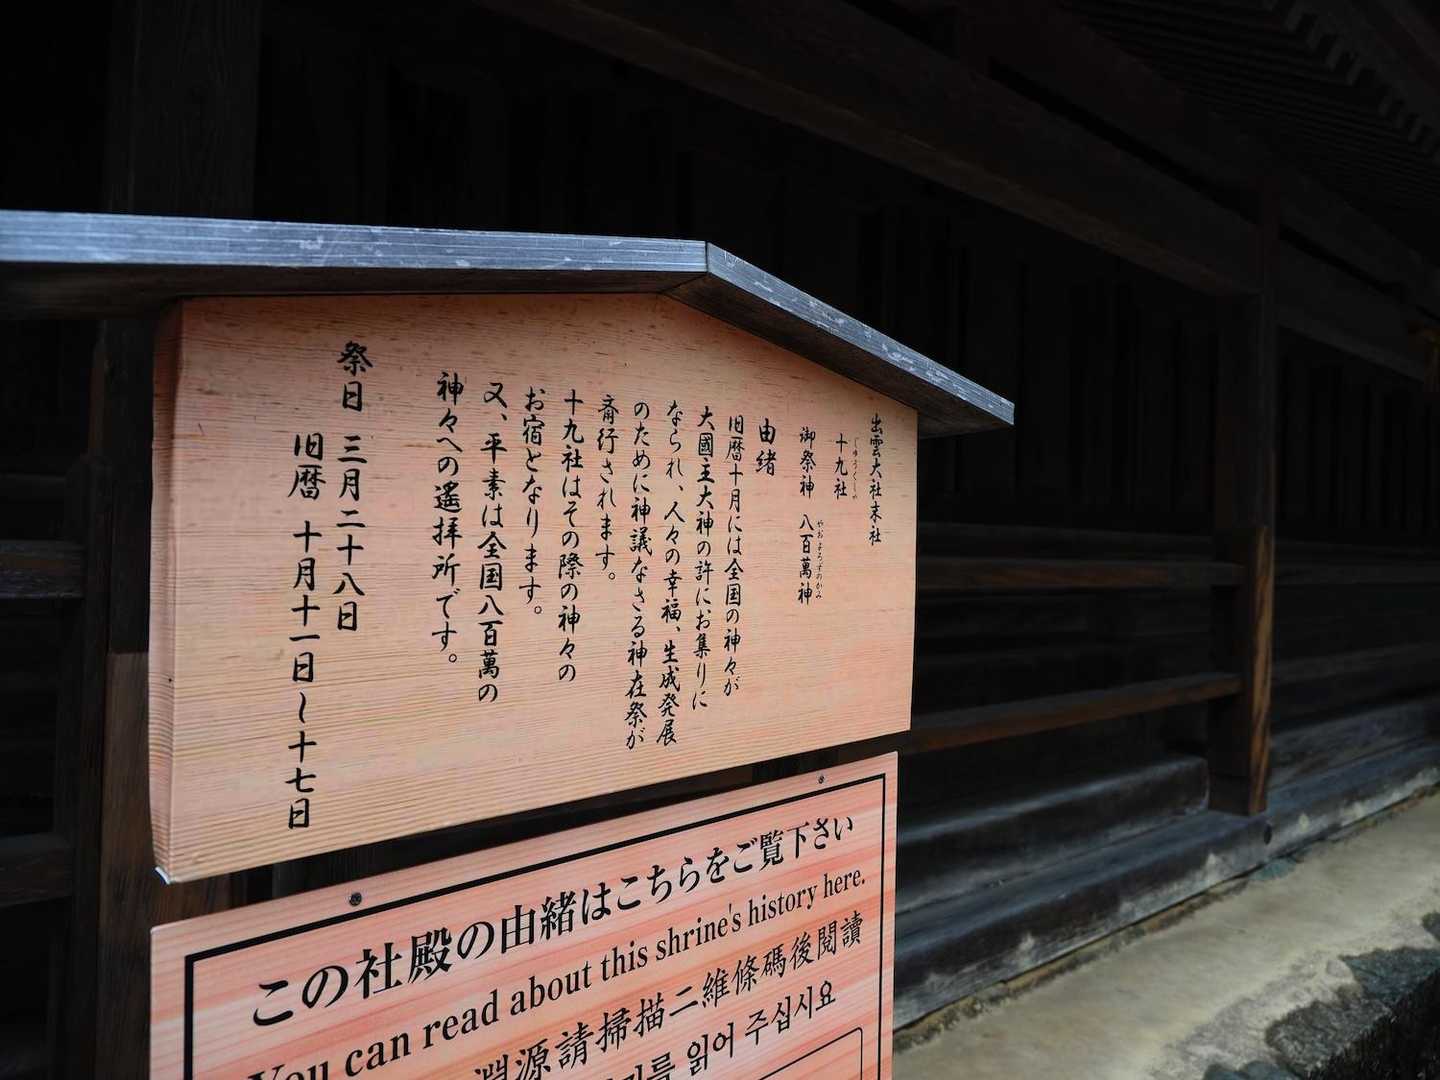 出雲大社末社
じゅうくしゃ
十九社
御祭神 八百萬神
やおよろずのかみ
由緒
旧暦十月には全国の神々が
大國主大神の許にお集りに
なられ、人々の幸福、生成発展
のために神議なさる神在祭が
斎行されます。
十九社はその際の神々の
お宿となります。
又、平素は全国八百萬の
神々への遙拝所です。
祭日 三月二十八日
旧暦 十月十一日~十七日
この社殿の由緒はこちらをご覧下さい
You can read about this shrine's history here.
淵源請掃描二維條碼後閱讀
를 읽어 주십시요